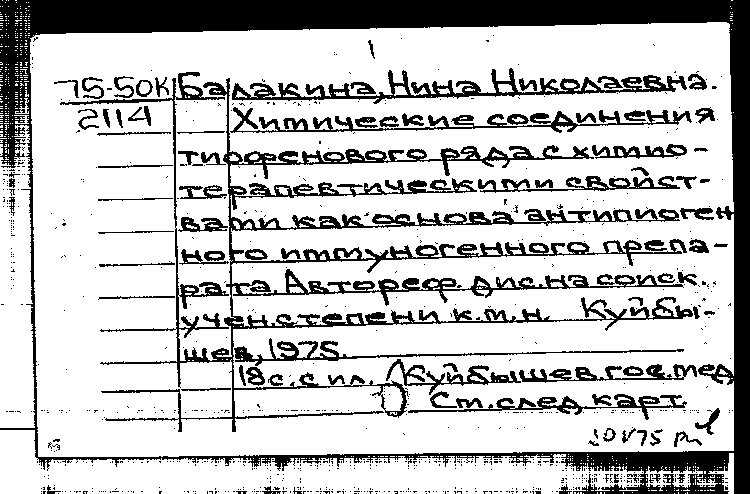 1
75-50К Балакина, Нина Николаевна.
2114 Химические соединения
тиофенового ряда с химио-
терапевтическими свойст-
вами как основа антипиоген
ного иммуногенного препа-
рата. Автореф. дис. на соиск.
учен. степени к.м.н. Куйбы-
шев, 1975.
18 с. с ил. (Куйбышев. гос. мед
См. след. карт.
20 V 75